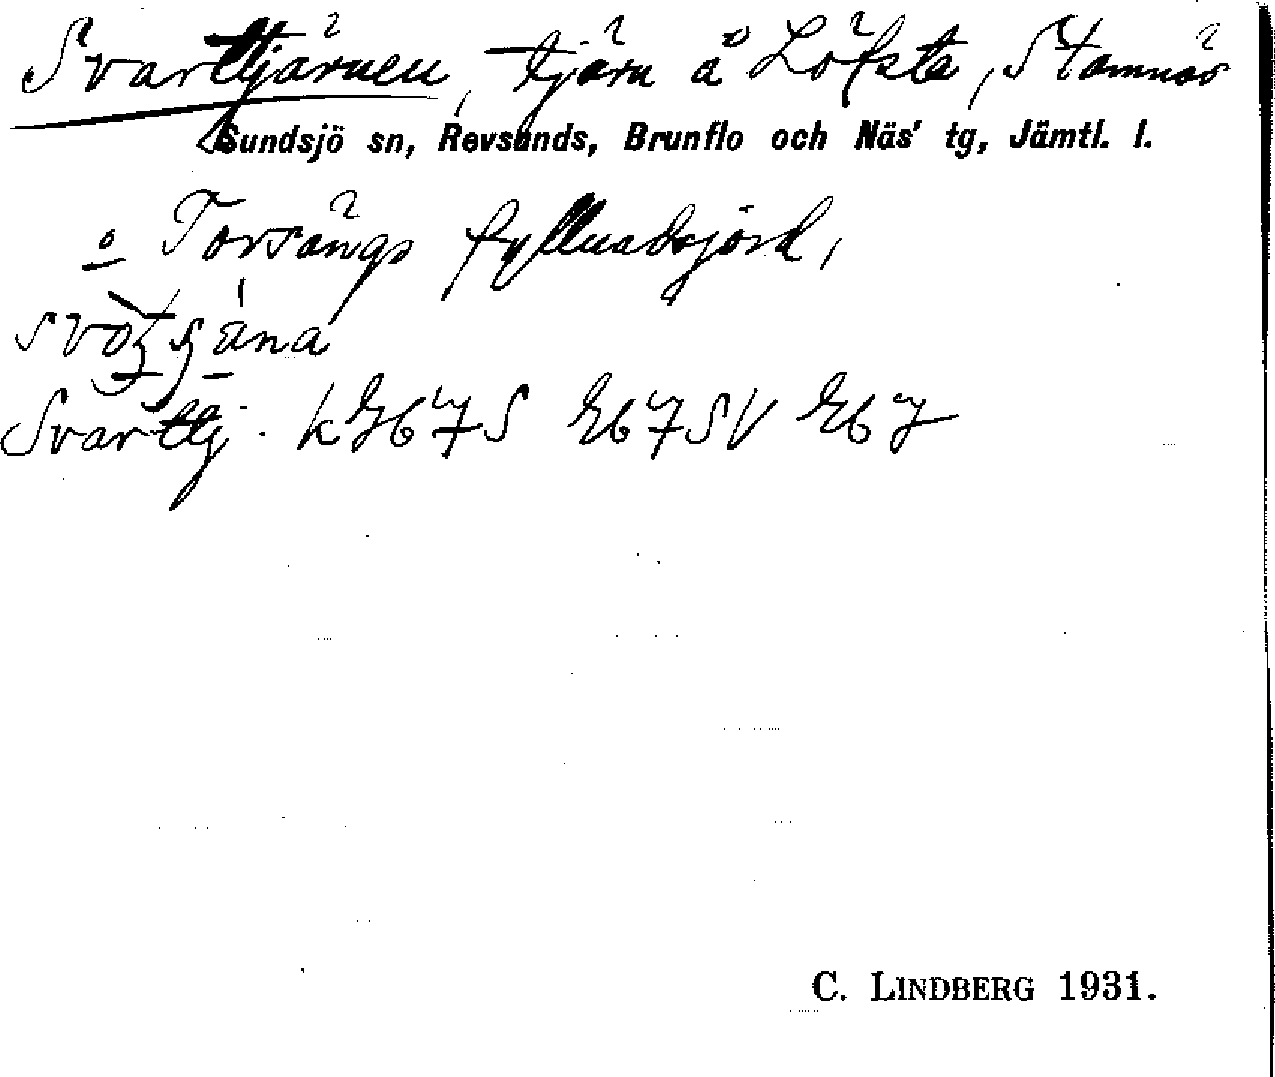 Svarttjärnen, tjärn å Löfsta, Stamnäs
Sundsjö sn, Revsunds, Brunflo och Näs' tg, Jämtl. l.
o Torsängs fyllnadsjord,
Svarttj. k Eb 7 S Eb 7 SV Eb 7
C. LINDBERG 1931.